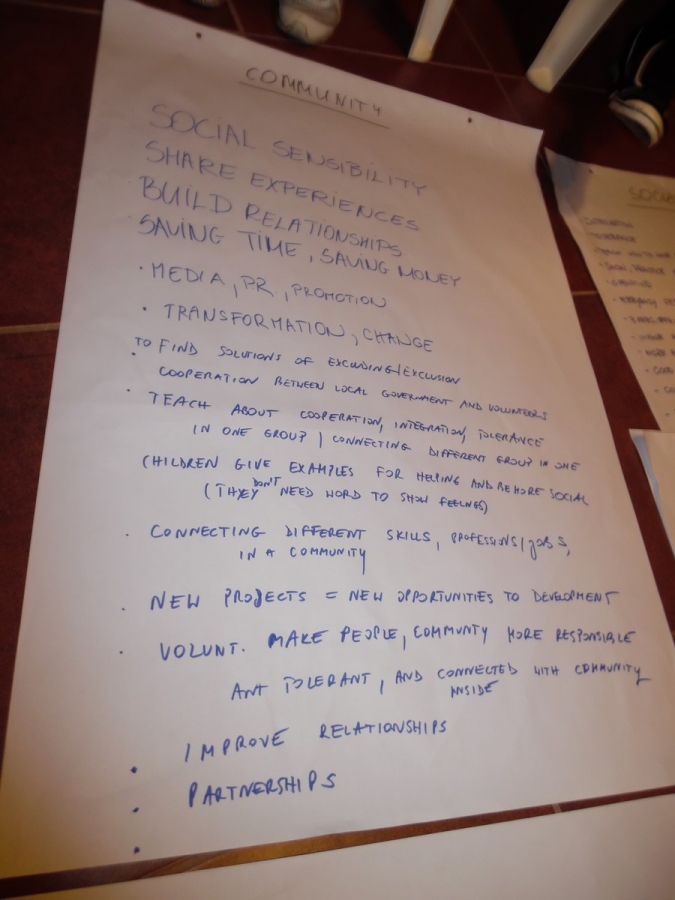 COMMUNITY
SOCIAL SENSIBILITY
SHARE EXPERIENCES
BUILD RELATIONSHIPS
SAVING TIME, SAVING MONEY
· MEDIA, PR., PROMOTION
· TRANSFORMATION, CHANGE
TO FIND SOLUTIONS OF EXCLUDING/EXCLUSION
· COOPERATION BETWEEN LOCAL GOVERNMENT AND VOLUNTEERS
· TEACH ABOUT COOPERATION, INTEGRATION, TOLERANCE
IN ONE GROUP / CONNECTING DIFFERENT GROUP IN ONE
CHILDREN GIVE EXAMPLES FOR HELPING AND BE MORE SOCIAL
(THEY DON'T NEED WORD TO SHOW FEELINGS)
· CONNECTING DIFFERENT SKILLS, PROFESSIONS/JOBS,
IN A COMMUNITY
· NEW PROJECTS = NEW OPPORTUNITIES TO DEVELOPMENT
· VOLUNT. MAKE PEOPLE, COMMUNTY MORE RESPONSIBLE
ANT TOLERANT, AND CONNECTED WITH COMMUNITY
INSIDE
· IMPROVE RELATIONSHIPS
· PARTNERSHIPS
·